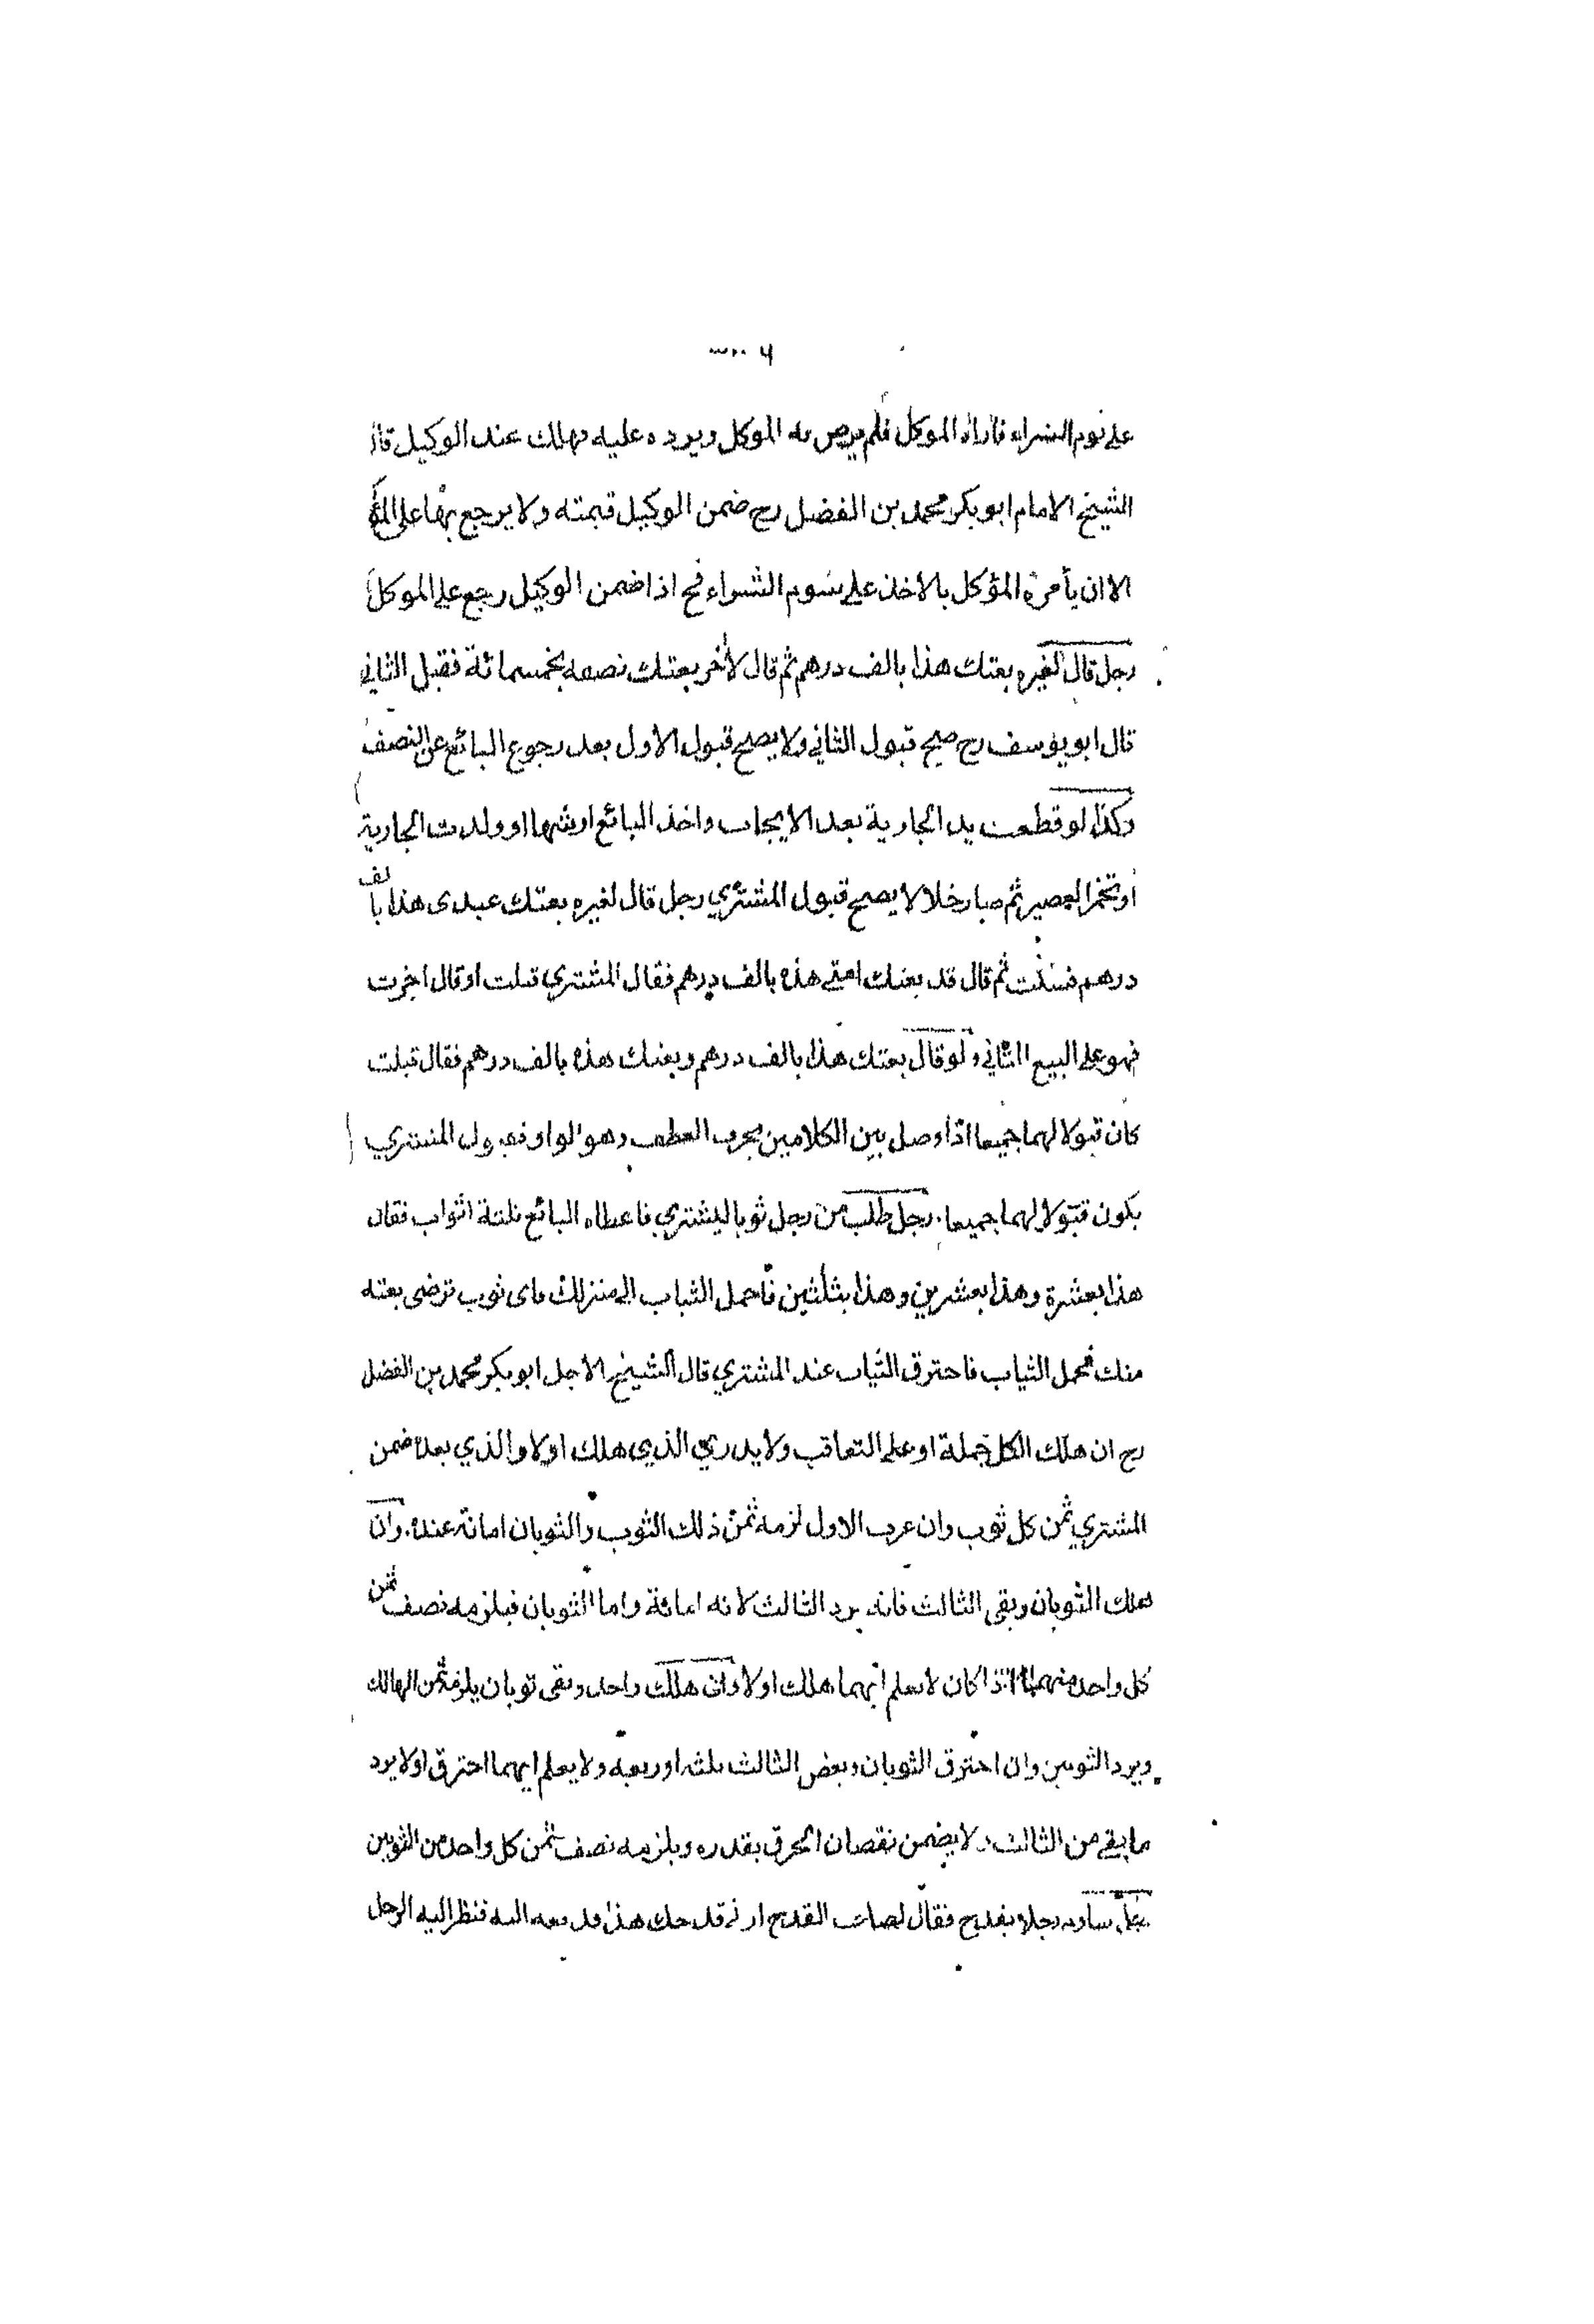 ٦
على سوم الشراء فاراه الموكل فلم يرض به الموكل ويرده عليه فهلك عند الوكيل قال
الشيخ الامام ابو بكر محمد بن الفضل رح ضمن الوكيل قيمته ولا يرجع بها على المؤ
الا ان يأمره المؤكل بالاخذ على سوم الشراء فح اذا ضمن الوكيل رجع على الموكل
رجل قال لغيره بعتك هذا بالف درهم ثم قال لاخر بعتك نصفه بخمسمائة فقبل الثاني
قال ابو يوسف رح صح قبول الثاني ولا يصح قبول الاول بعد رجوع البائع عن النصف
وكذا لو قطعت يد الجارية بعد الايجاب واخذ البائع ارشها او ولدت الجارية
او تخمر العصير ثم صار خلا لا يصح قبول المشتري رجل قال لغيره بعتك عبدى هذا بالف
درهم فسكت ثم قال قد بعتك امتي هذه بالف درهم فقال المشتري قبلت او قال اجزت
فهو على البيع الثاني ولو قال بعتك هذا بالف درهم وبعتك هذه بالف درهم فقال قبلت
كان قبولا لهما جميعا اذا وصل بين الكلامين بحرف العطف وهو الواو فقبول المشتري
يكون قبولا لهما جميعا. رجل طلب من رجل ثوبا ليشتري فاعطاه البائع ثلثة اثواب فقال
هذا بعشرة وهذا بعشرين وهذا بثلثين فاحمل الثياب الى منزلك فاى ثوب ترضى بعته
منك فحمل الثياب فاحترق الثياب عند المشتري قال الشيخ الاجل ابو بكر محمد بن الفضل
رح ان هلك الكل جملة او على التعاقب ولا يدري الذي هلك اولا والذي بعده ضمن
المشتري ثمن كل ثوب وان عرف الاول لزمه ثمن ذلك الثوب والثوبان امانة عنده. وان
هلك الثوبان وبقى الثالث فانه يرد الثالث لانه امانة واما الثوبان فيلزمه نصف ثمن
كل واحد منهما اذا كان لا يعلم ايهما هلك اولا وان هلك واحد وبقى ثوبان يلزمه ثمن الهالك
ويرد الثوبين وان احترق الثوبان وبعض الثالث ثلثه او ربعه ولا يعلم ايهما احترق اولا يرد
ما بقي من الثالث ولا يضمن نقصان الحرق بقدره ويلزمه نصف ثمن كل واحد من الثوبين
رجل ساوم رجلا بقدح فقال لصاحب القدح ارني قدحك هذا فدفعه اليه فنظر اليه الرجل